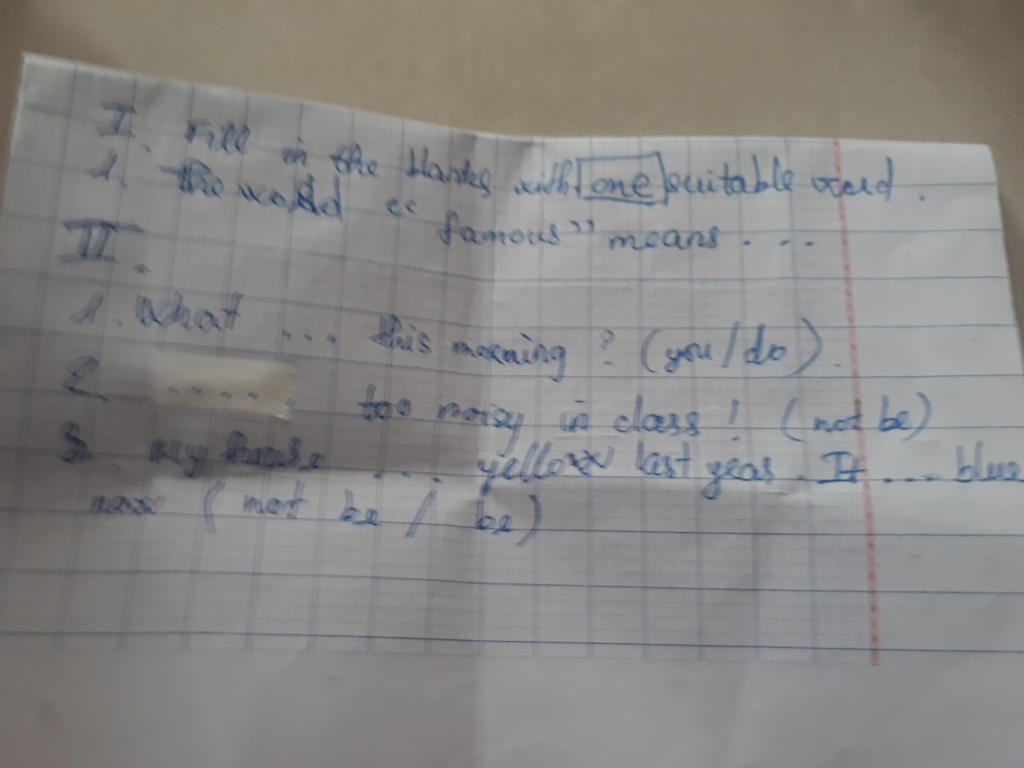 I. Fill in the blanks with one suitable word.
1. The word " famous" means ...
II.
1. What ... this morning ? (you/do).
2. ..... too noisy in class ! (not be)
3. My house ... yellow last year. It ... blue
now ( not be / be)